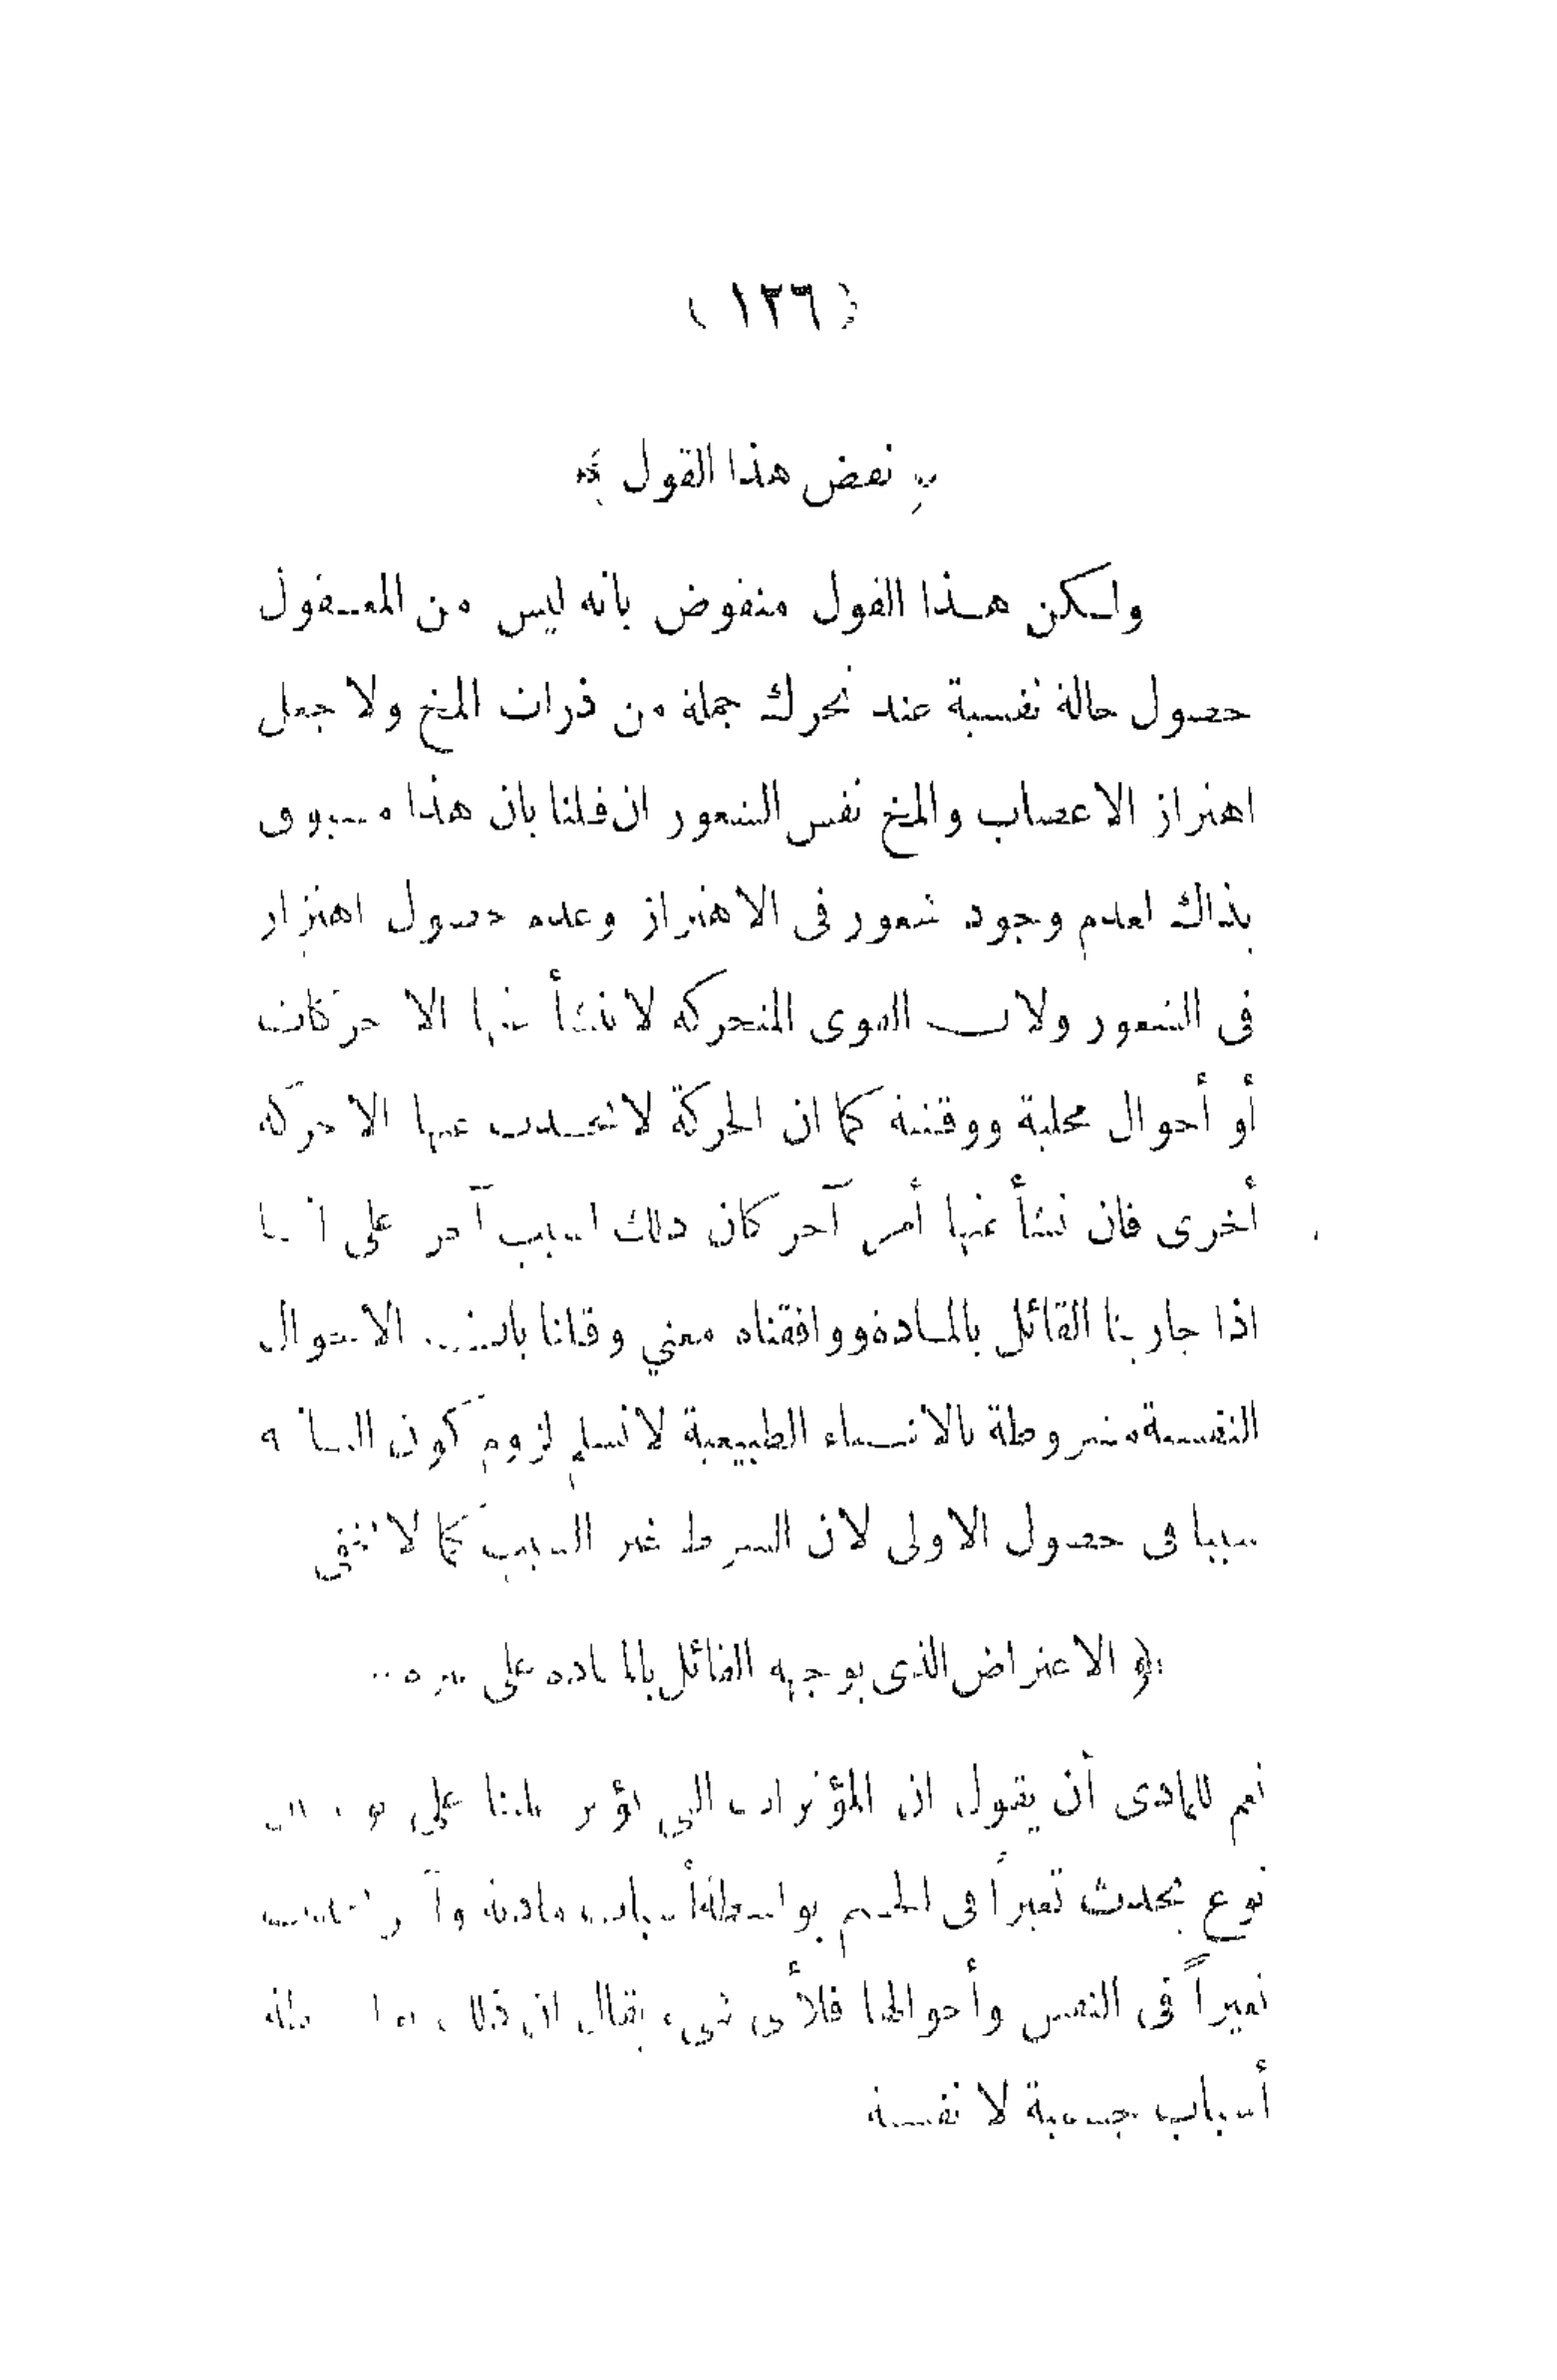 ( ١٢٦ )
﴿ نقض هذا القول ﴾
ولكن هذا القول منقوض بانه ليس من المعقول
حصول حالة نفسية عند تحرك جملة من ذرات المخ ولا جعل
اهتزاز الاعصاب والمخ نفس الشعور ان قلنا بان هذا مسبوق
بذاك لعدم وجود شعور فى الاهتزاز وعدم حصول اهتزاز
فى الشعور ولان القوى المتحركة لا ينشأ عنها الا حركات
أو أحوال محلية ووقتية كما ان الحركة لا تحدث عنها الا حركة
أخرى فان نشأ عنها أمر آخر كان ذلك لسبب آخر على اننا
اذا جارينا القائل بالمادة ووافقناه معنى وقلنا بان الاحوال
النفسية مشروطة بالاشياء الطبيعية لا نسلم لزوم كون الثانية
سببا فى حصول الاولى لان الشرط غير السبب كما لا يخفى
﴿ الاعتراض الذى يوجهه القائل بالمادة على غيره
نعم للمادى أن يقول ان المؤثرات التى تؤثر علينا على
نوع يحدث تغيراً فى الجسم بواسطة أسباب مادية
تغييراً فى النفس وأحوالها فلأى شىء يقال ان ذلك
أسباب جسمية لا نفسية